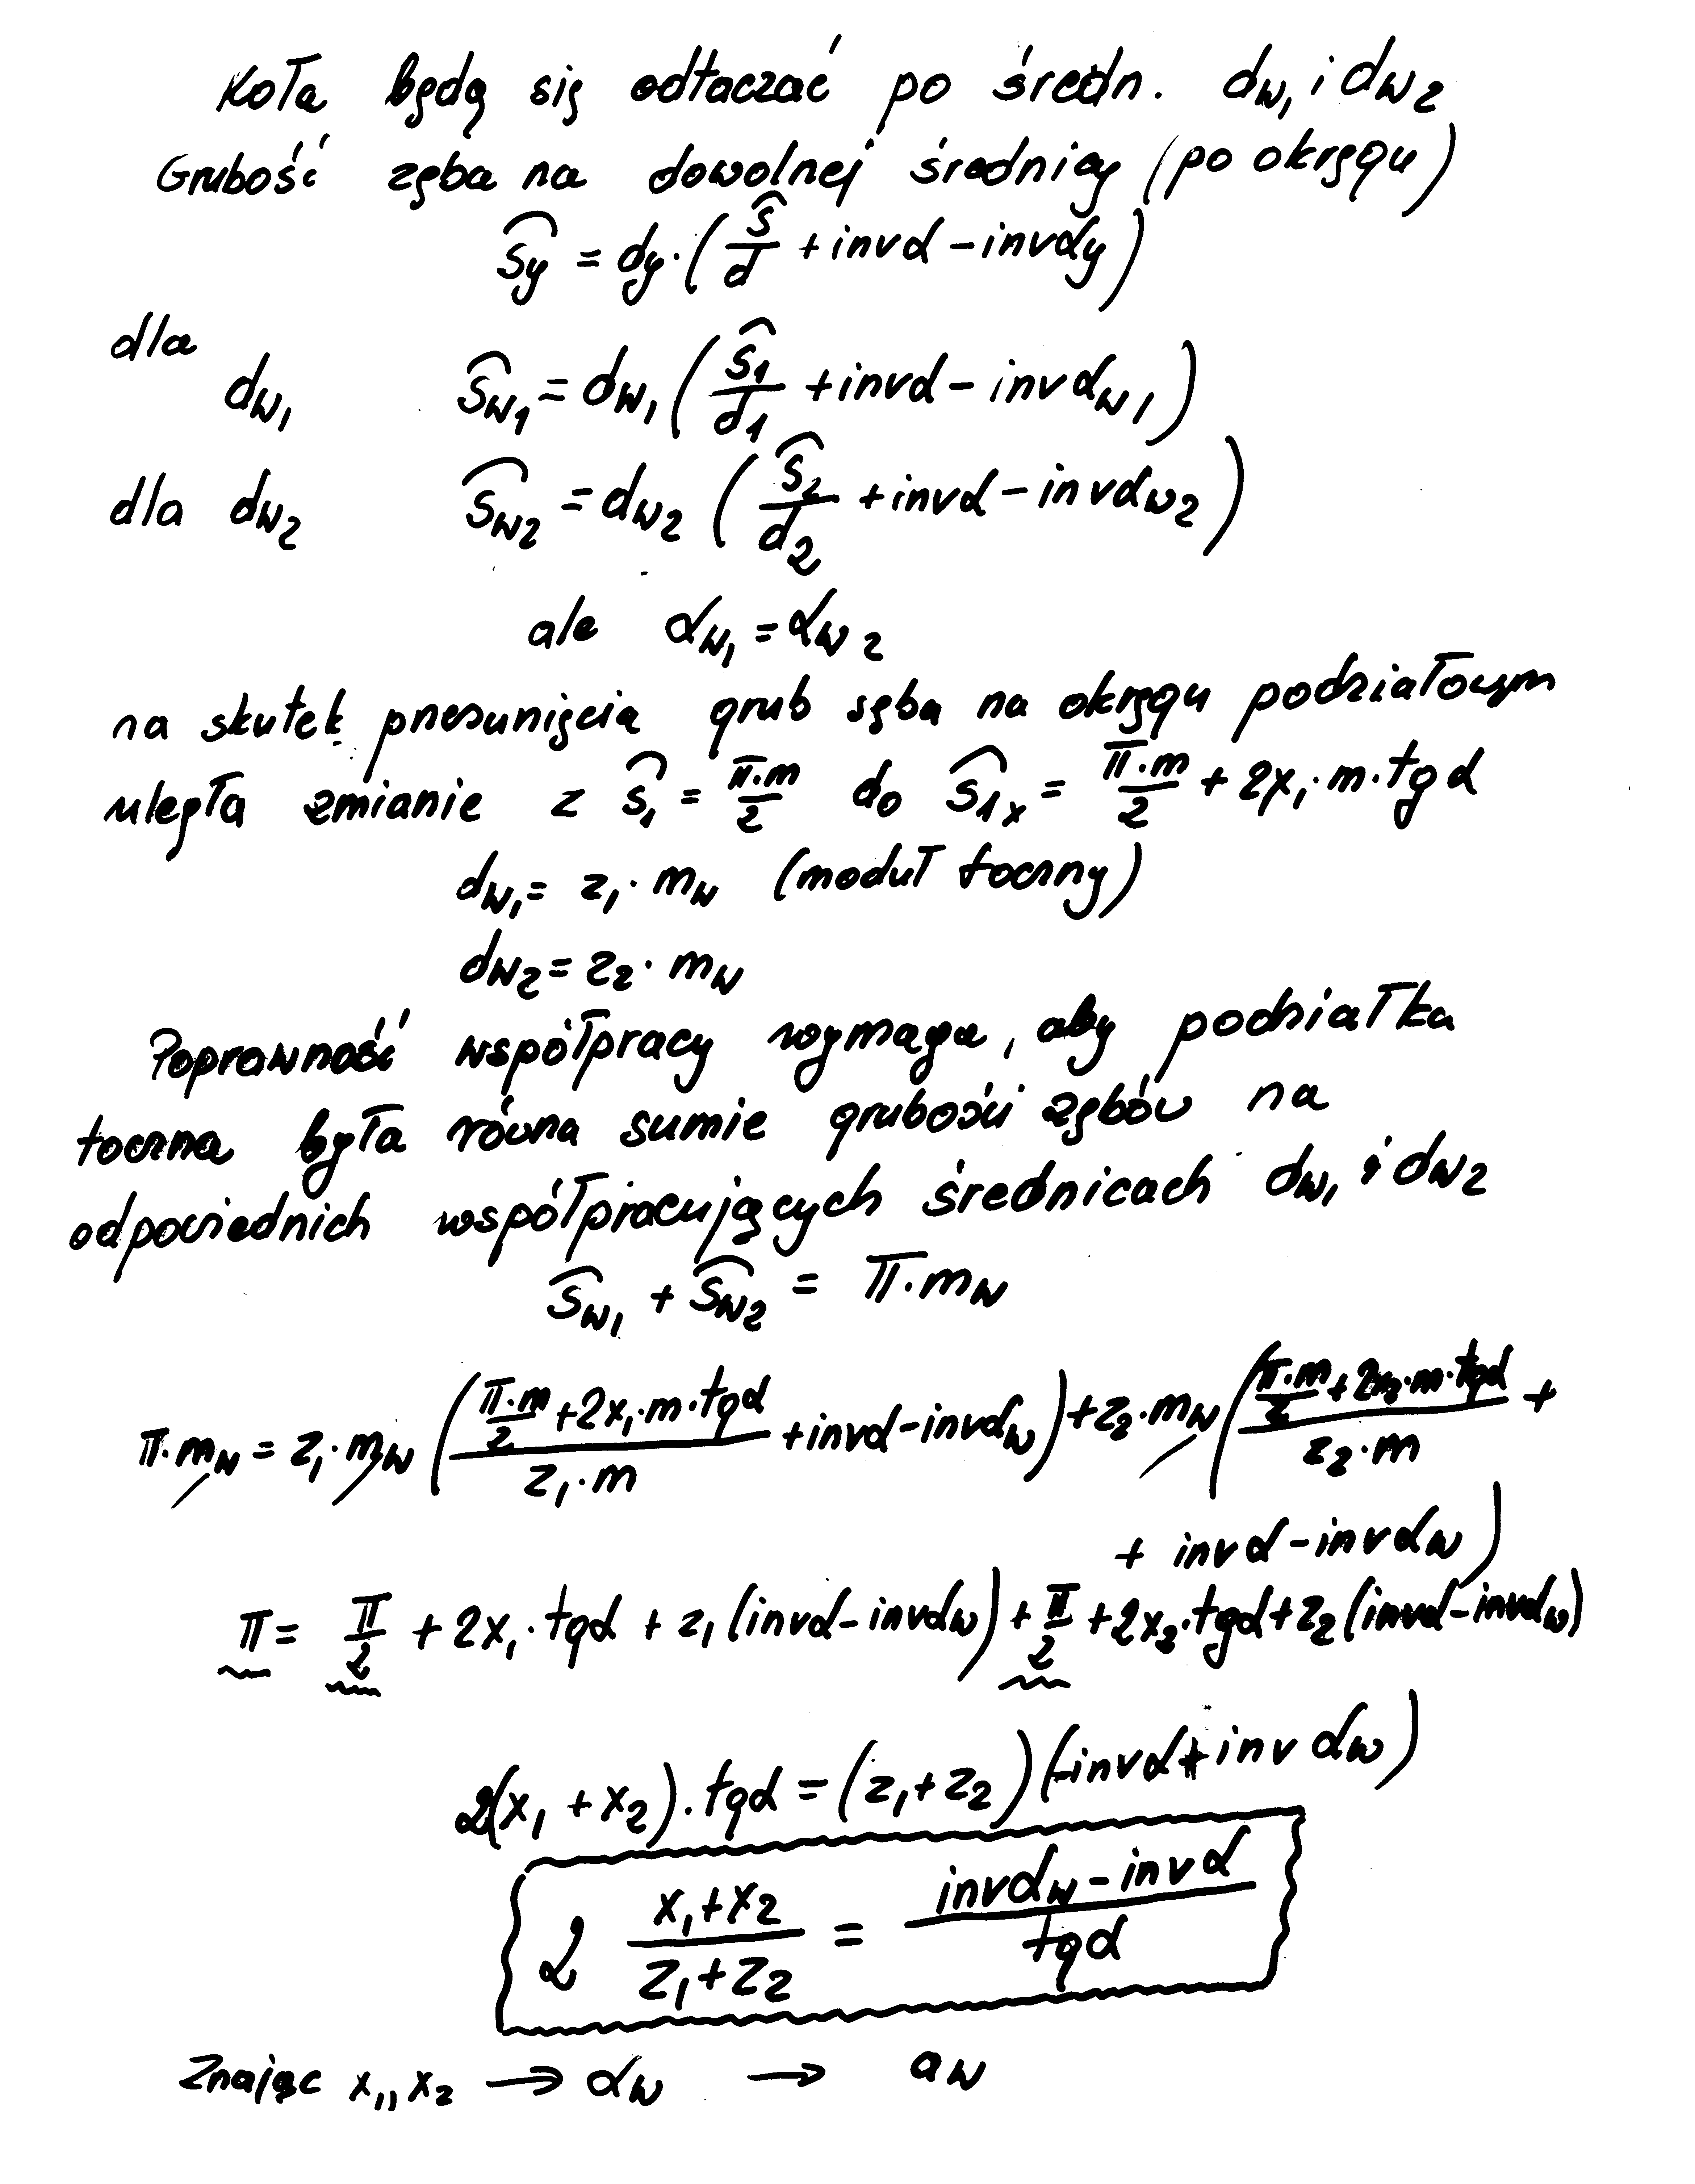 Koła będą się odtaczać po średn. dw₁ i dw₂
Grubość zęba na dowolnej średnicy (po okręgu)
ŝy = dy·(ŝ/d + invα - invαy)
dla
dw₁ ŝw₁ = dw₁(ŝ₁/d₁ + invα - invαw₁)
dla dw₂ ŝw₂ = dw₂(ŝ₂/d₂ + invα - invαw₂)
ale αw₁ = αw₂
na skutek przesunięcia grub zęba na okręgu podziałowym
uległa zmianie z ŝ₁ = π·m/2 do ŝ₁ₓ = π·m/2 + 2x₁·m·tgα
dw₁ = z₁·mw (moduł toczny)
dw₂ = z₂·mw
Poprawność współpracy wymaga, aby podziałka
toczna była równa sumie grubości zębów na
odpowiednich współpracujących średnicach dw₁ i dw₂
ŝw₁ + ŝw₂ = π·mw
π·mw = z₁·mw((π·m/2 + 2x₁·m·tgα)/(z₁·m) + invα - invαw) + z₂·mw((π·m/2 + 2x₂·m·tgα)/(z₂·m) +
+ invα - invαw)
π = π/2 + 2x₁·tgα + z₁(invα - invαw) + π/2 + 2x₂·tgα + z₂(invα - invαw)
2(x₁ + x₂)·tgα = (z₁ + z₂)(-invα + invαw)
2 (x₁+x₂)/(z₁+z₂) = (invαw - invα)/tgα
Znając x₁,, x₂ → αw → aw